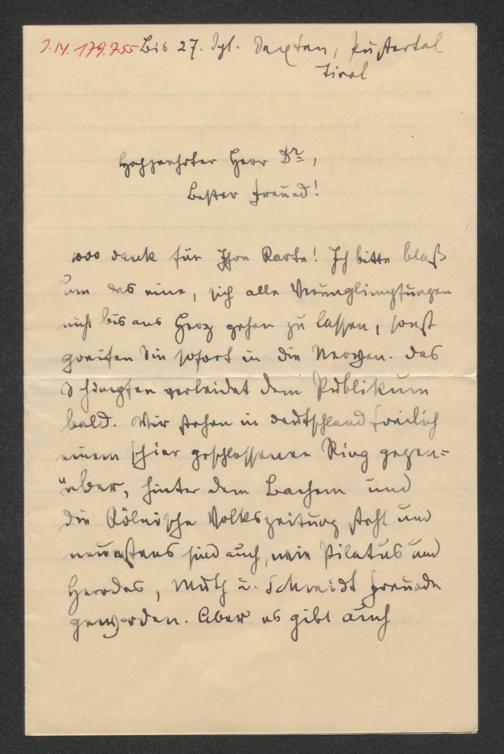 I.N. 179.755 Bis 27. Spt. Sexten, Pustertal
Tirol
Hochgeehrter Herr Dr.,
bester Freund!
1000 Dank für Ihre Karte! Ich bitte bloß
um das eine, sich alle Verunglimpfungen
nicht bis ans Herz gehen zu lassen, sonst
greifen Sie sofort in die Nerven. Das
Schimpfen verleidet dem Publikum
bald. Wir stehen in Deutschland freilich
einem schier geschlossenen Ring gegen=
über, hinter dem Bachem und
die Kölnische Volkszeitung steht und
neuestens sind auch, wie Pilatus und
Herodes, Muth u. Schmidt Freunde
geworden. Aber es gibt auch